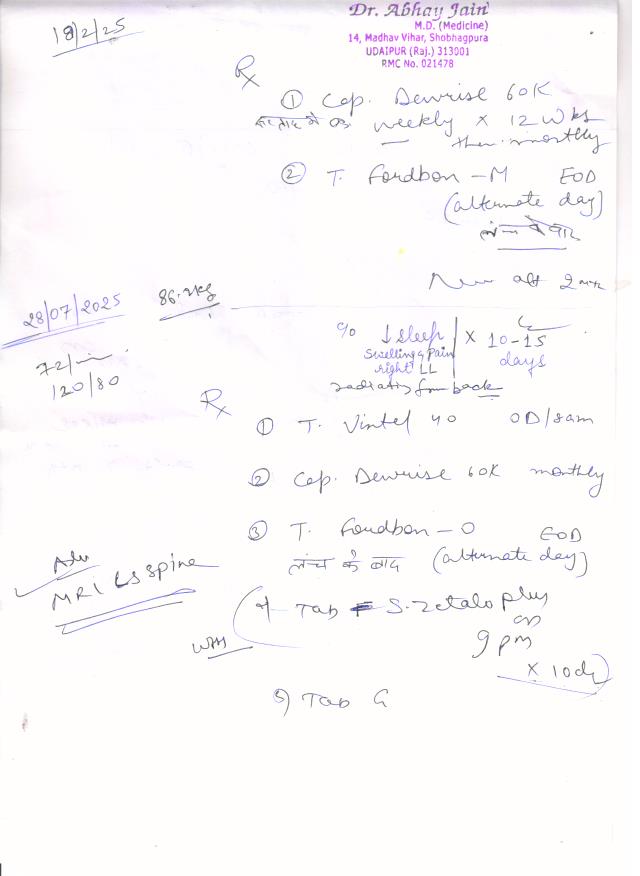 Dr. Abhay Jain
M.D. (Medicine)
14, Madhav Vihar, Shobhagpura
UDAIPUR (Raj.) 313001
RMC No. 021478
18/2/25
Rx
① Cap. Dewrise 60K
weekly × 12 wks
then monthly
② T. Fordbon - M EOD
(alternate day)
28/07/2025
72/min
120/80
c/o ↓sleep
Swelling & Pain
right LL
× 10-15
days
radiating from back
Rx
① T. Vintel 40 OD/8am
② Cap. Dewrise 60K monthly
③ T. Fordbon - O EOD
लंच के बाद (alternate day)
Adv
MRI LS spine
Tab S. Zetalo plus
9 pm
5) Tab G